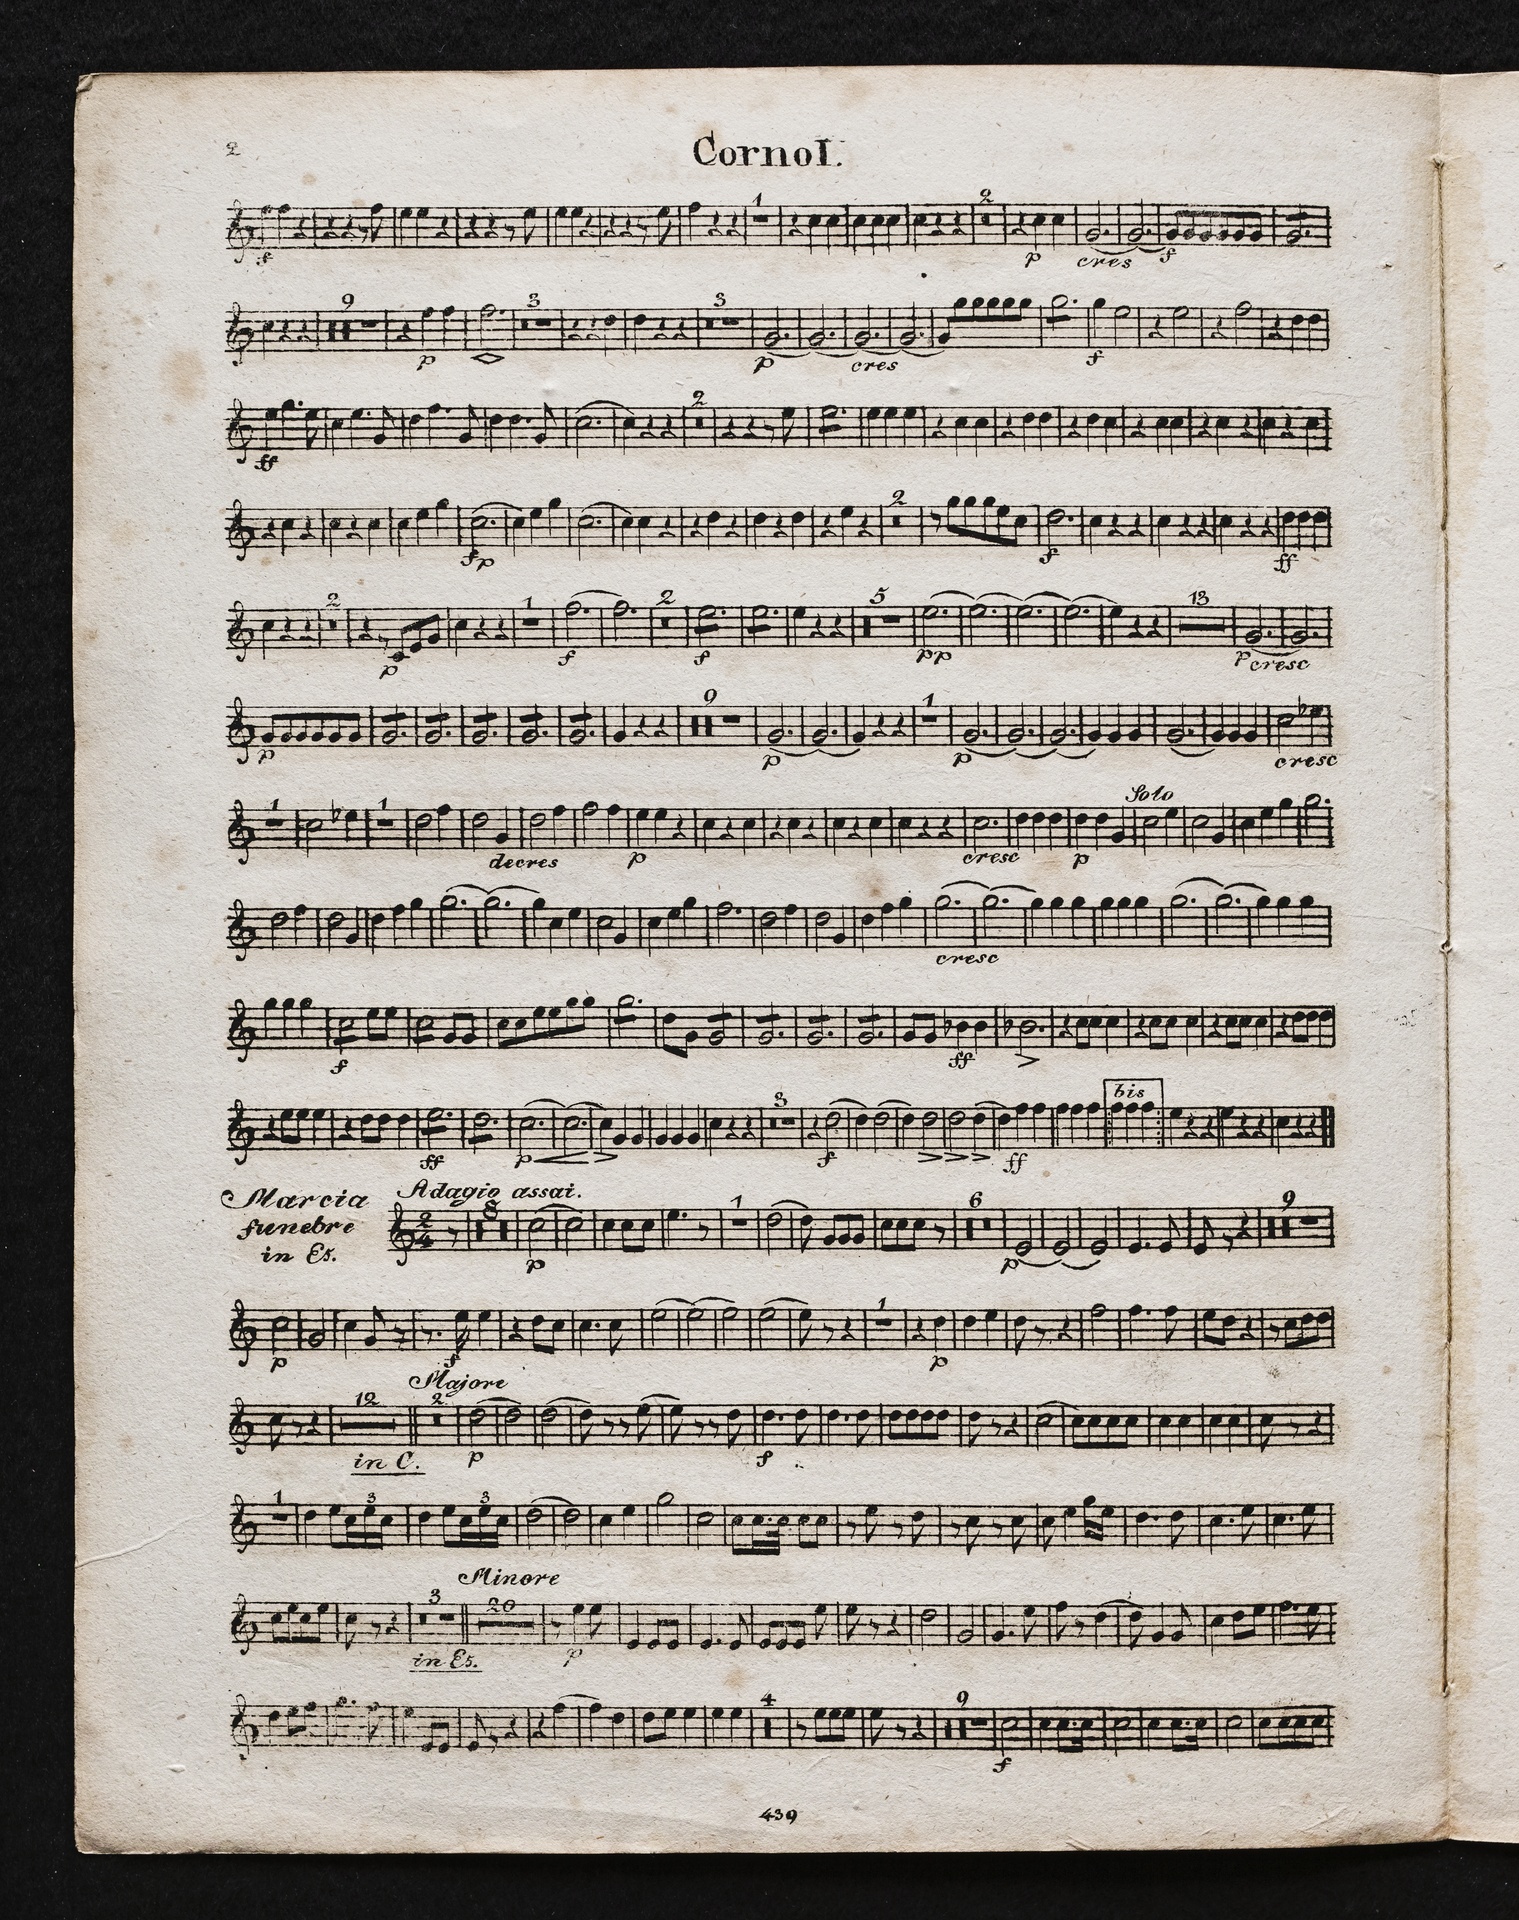 2
Corno I.
f 1 2 p cres f
9 p 3 3 p cres f
ff 2
fp 2 f ff
2 p 1 f 2 f 5 pp 13 p cresc
p 9 p 1 p cresc
1 1 decres p cresc p Solo
cresc
f ff
ff p 3 f ff bis
Marcia funebre in Es.
Adagio assai.
2/4 8 p 1 6 p 9
p f 1 p
12 in C. Majore 2 p f
1 3 3
3 in Es. Minore 20 p
4 9 f
439